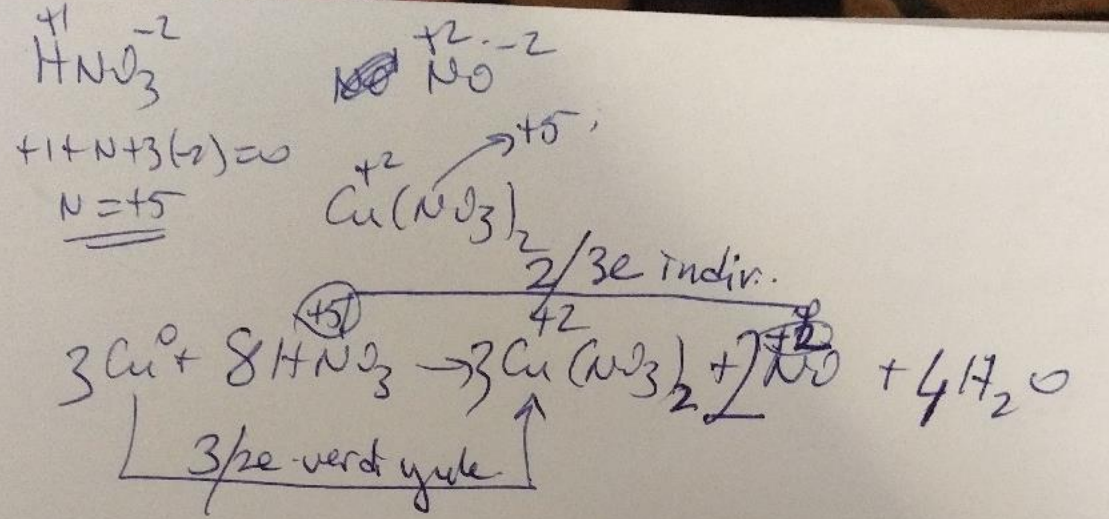 +1 -2
HNO3
+1+N+3(-2)=0
N=+5
+2 -2
NO
+2 +5
Cu(NO3)2
2/3e indir..
+5 +2 +2
3Cu⁰ + 8HNO3 → 3Cu(NO3)2 + 2NO + 4H2O
3/2e verdi yük